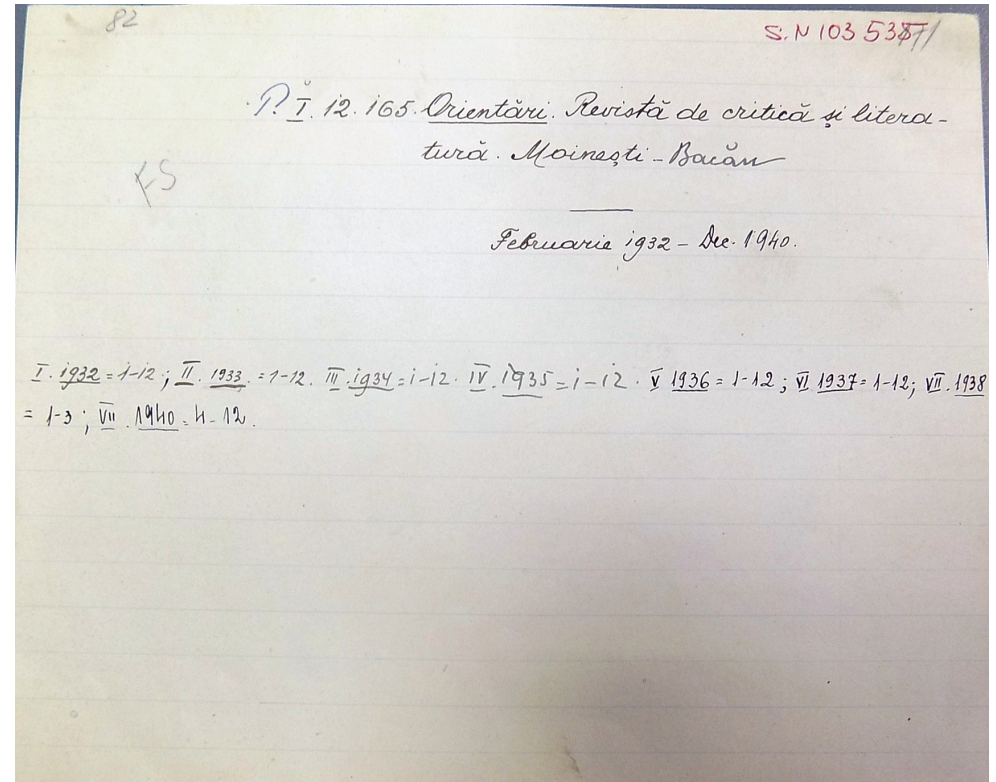 82
S.N 103 538/71
P. I. 12.165. Orientări. Revistă de critică și litera-
tură. Moinești - Bacău
FS
Februarie 1932 - Dec. 1940.
I. 1932 = 1-12; II. 1933. = 1-12. III. 1934 = 1-12. IV. 1935 = 1-12. V 1936 = 1-12; VI 1937 = 1-12; VII. 1938
= 1-3; VII. 1940 = 4-12.